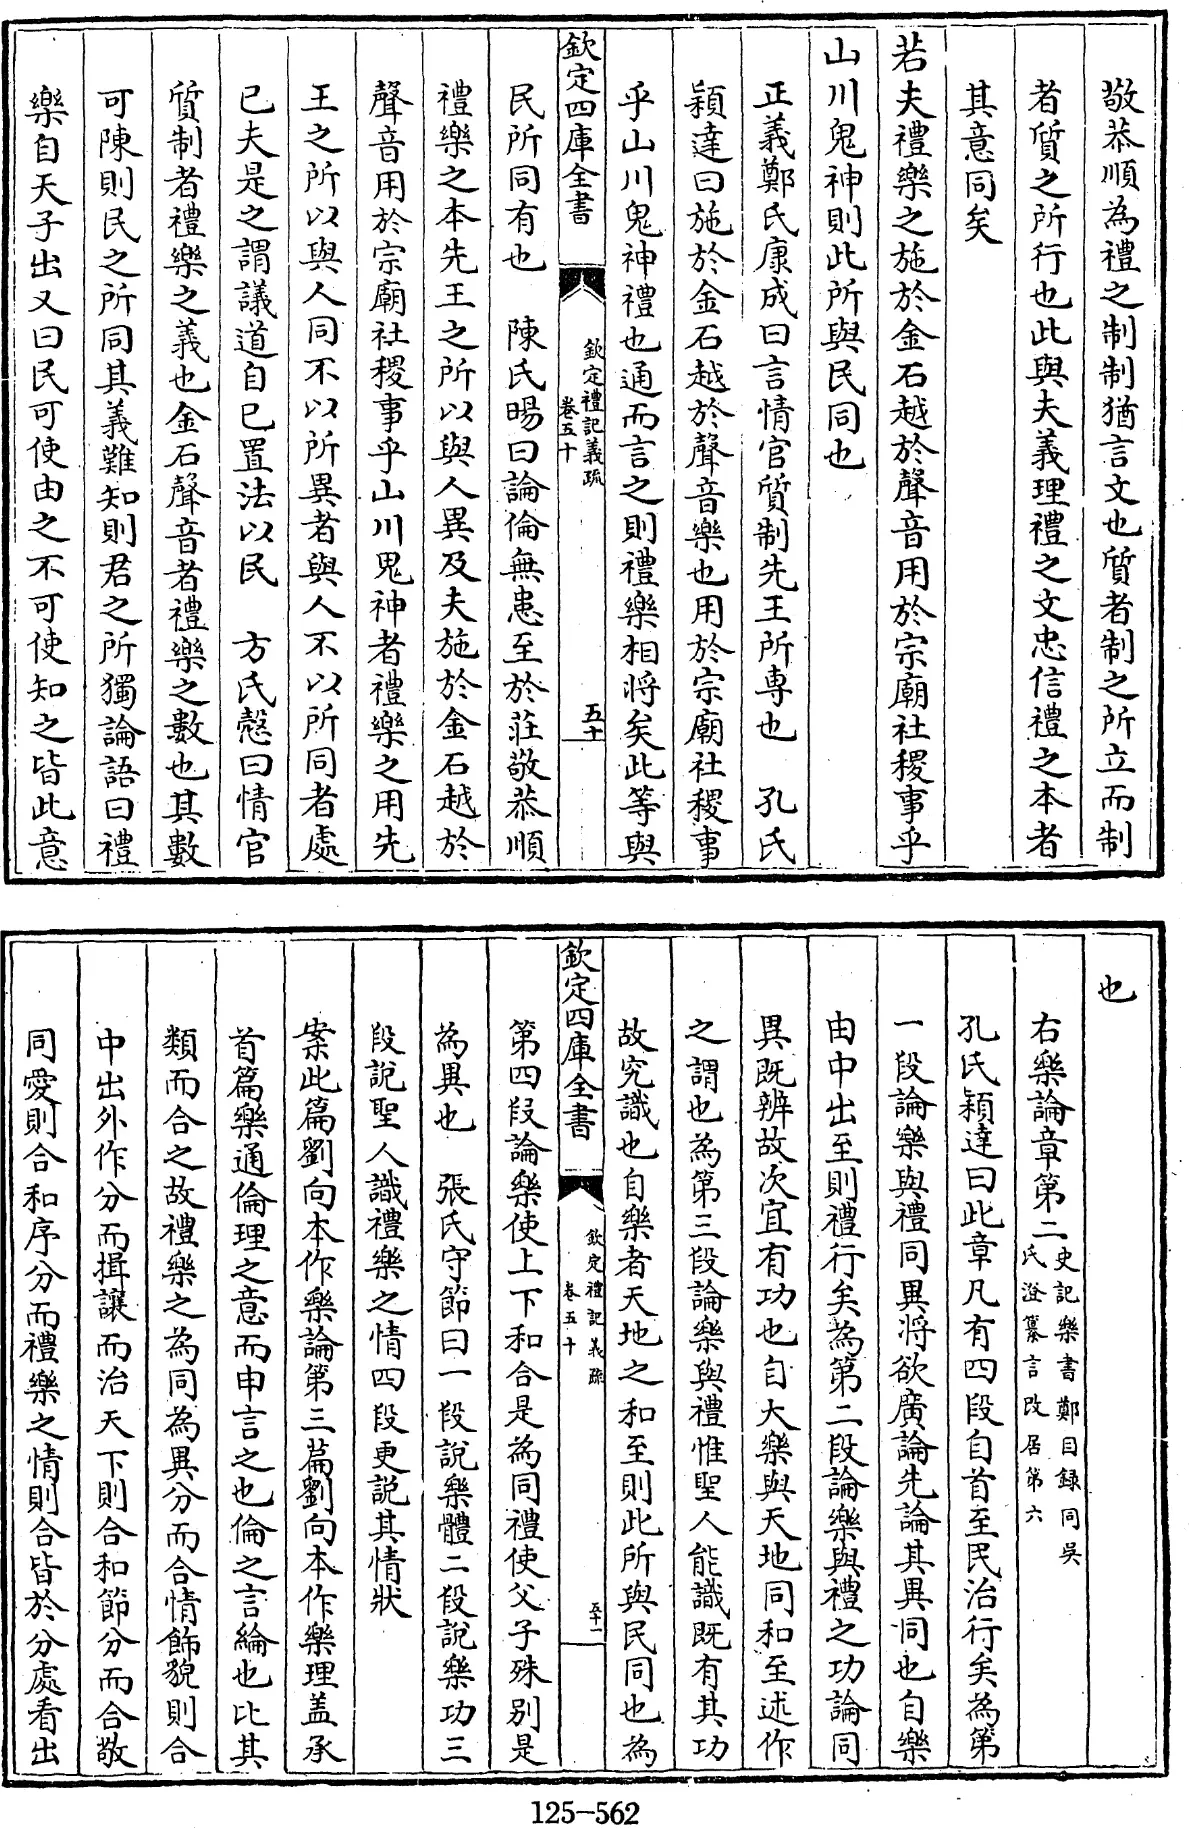 敬恭順為禮之制制猶言文也質者制之所立而制
者質之所行也此與夫義理禮之文忠信禮之本者
其意同矣
若夫禮樂之施於金石越於聲音用於宗廟社稷事乎
山川鬼神則此所與民同也
正義鄭氏康成曰言情官質制先王所専也　孔氏
穎達曰施於金石越於聲音樂也用於宗廟社稷事
乎山川鬼神禮也通而言之則禮樂相將矣此等與
欽定四庫全書
欽定禮記義疏
卷五十
五十
民所同有也　陳氏暘曰論倫無患至於莊敬恭順
禮樂之本先王之所以與人異及夫施於金石越於
聲音用於宗廟社稷事乎山川鬼神者禮樂之用先
王之所以與人同不以所異者與人不以所同者處
已夫是之謂議道自已置法以民　方氏慤曰情官
質制者禮樂之義也金石聲音者禮樂之數也其數
可陳則民之所同其義難知則君之所獨論語曰禮
樂自天子出又曰民可使由之不可使知之皆此意
也
右樂論章第二史記樂書鄭目録同吳
氏澄纂言改居第六
孔氏穎達曰此章凡有四段自首至民治行矣為第
一段論樂與禮同異將欲廣論先論其異同也自樂
由中出至則禮行矣為第二段論樂與禮之功論同
異既辨故次宜有功也自大樂與天地同和至述作
之謂也為第三段論樂與禮惟聖人能識既有其功
故究識也自樂者天地之和至則此所與民同也為
欽定四庫全書
欽定禮記義疏
卷五十
五十一
第四段論樂使上下和合是為同禮使父子殊别是
為異也　張氏守節曰一段說樂體二段說樂功三
段說聖人識禮樂之情四段更説其情狀
案此篇劉向本作樂論第三篇劉向本作樂理盖承
首篇樂通倫理之意而申言之也倫之言綸也比其
類而合之故禮樂之為同為異分而合情飾貌則合
中出外作分而揖讓而治天下則合和節分而合敬
同愛則合和序分而禮樂之情則合皆於分處看出
125-562